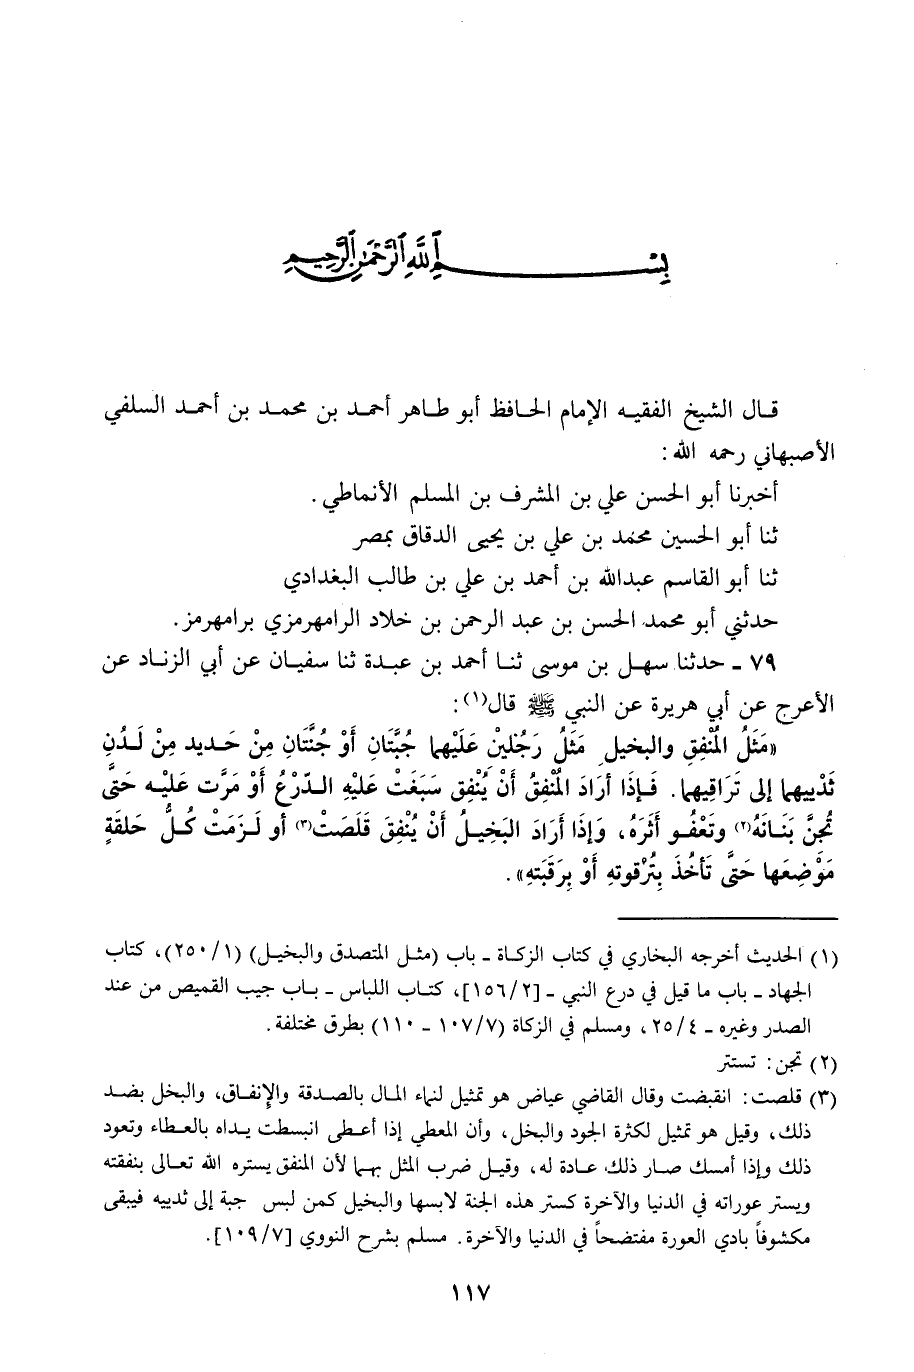 بِسْمِ اللَّهِ الرَّحْمَنِ الرَّحِيمِ
قـال الشيخ الفقيـه الإمام الحافظ أبو طـاهر أحمـد بن محمـد بن أحمـد السلفي
الأصبهاني رحمه الله :
أخبرنا أبو الحسن علي بن المشرف بن المسلم الأنماطي .
ثنا أبو الحسين محمد بن علي بن يحيى الدقاق بمصر
ثنا أبو القاسم عبدالله بن أحمد بن علي بن طالب البغدادي
حدثني أبو محمد الحسن بن عبد الرحمن بن خلاد الرامهرمزي برامهرمز .
٧٩ ـ حدثنا سهـل بن موسى ثنـا أحمد بن عبـدة ثنا سفيـان عن أبي الزنـاد عن
الأعرج عن أبي هريرة عن النبي ﷺ قال(١) :
«مَثَلُ المُنْفِقِ والبخيلِ مَثَلُ رَجُلَيْنِ عَلَيْهِما جُبَّتَانِ أَوْ جُنَّتَانِ مِنْ حَـديد مِنْ لَـدُنِ
ثَدْيِيهما إلى تَرَاقِيهِما . فَـإذَا أرَادَ المُنْفِقُ أنْ يُنْفِق سَبَغَتْ عَليْهِ الـدّرْعُ أَوْ مَرَّت عَليْـه حَتَّى
تُجِنَّ بَنَـانَهُ(٢) وتَعْفُـو أَثَرَهُ ، وَإذَا أرَادَ البَخِيـلُ أَنْ يُنْفِقَ قَلَصَتْ(٣) أو لَـزِمَتْ كُـلُّ حَلقَةٍ
مَوْضِعَها حَتَّى تَأخُذَ بِتُرْقوتِهِ أَوْ بِرَقَبَتِهِ» .
(١) الحديث أخرجه البخاري في كتاب الزكـاة ـ باب (مثـل المتصدق والبخيـل) (١/ ٢٥٠)، كتاب
الجهاد ـ باب ما قيل في درع النبي ـ [٢/ ١٥٦]، كتـاب اللباس ـ بـاب جيب القميص من عند
الصدر وغيره ـ ٤/ ٢٥ ، ومسلم في الزكاة (٧/ ١٠٧ ـ ١١٠) بطرق مختلفة .
(٢) تجن : تستتر
(٣) قلصت : انقبضت وقال القاضي عياض هو تمثيل لنماء المال بالصـدقة والإنفـاق، والبخل بضـد
ذلك ، وقيل هو تمثيل لكثرة الجود والبخل ، وأن المعطي إذا أعـطى انبسطت يـداه بالعـطاء وتعود
ذلك وإذا أمسك صـار ذلك عـادة له ، وقيـل ضرب المثل بهـما لأن المنفق يستره الله تعالى بنفقته
ويستر عوراته في الدنيا والآخرة كستر هذه الجنة لابسها والبخيل كمن لبس جبة إلى ثدييه فيبقى
مكشوفاً بادي العورة مفتضحاً في الدنيا والآخرة . مسلم بشرح النووي [٧/ ١٠٩] .
١١٧